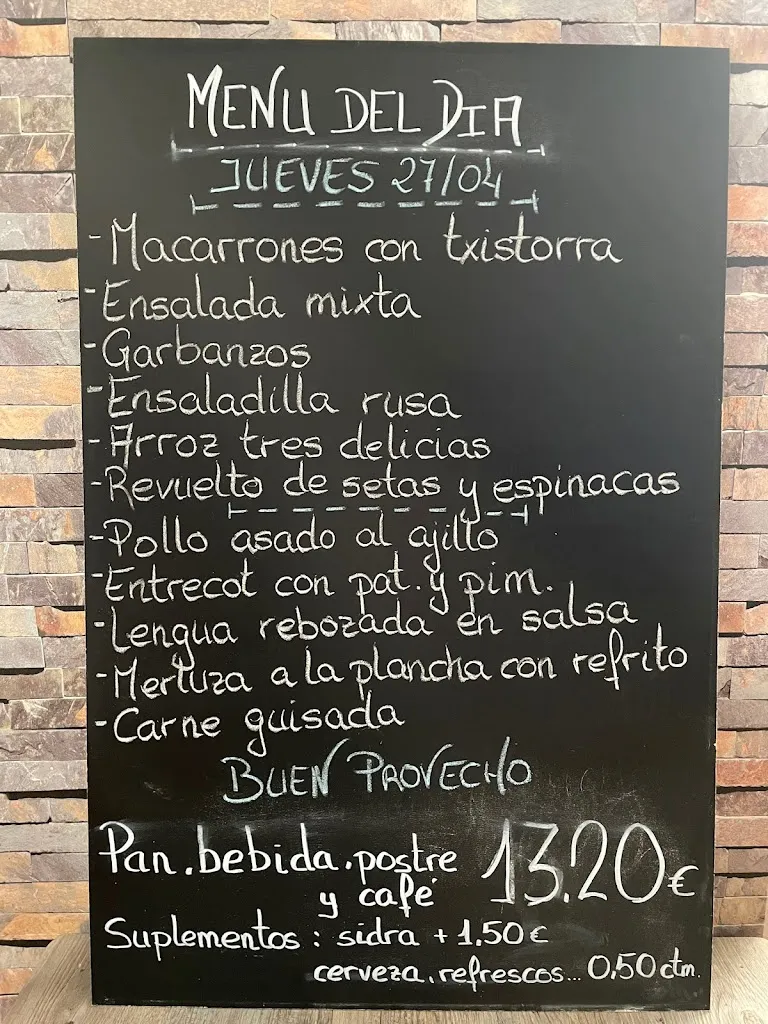 MENU DEL DIA
JUEVES 27/04
- Macarrones con txistorra
- Ensalada mixta
- Garbanzos
- Ensaladilla rusa
- Arroz tres delicias
- Revuelto de setas y espinacas
- Pollo asado al ajillo
- Entrecot con pat. y pim.
- Lengua rebozada en salsa
- Merluza a la plancha con refrito
- Carne guisada
BUEN PROVECHO
Pan, bebida, postre 13.20€
y café
Suplementos: sidra + 1.50€
cerveza, refrescos... 0,50 ctm.